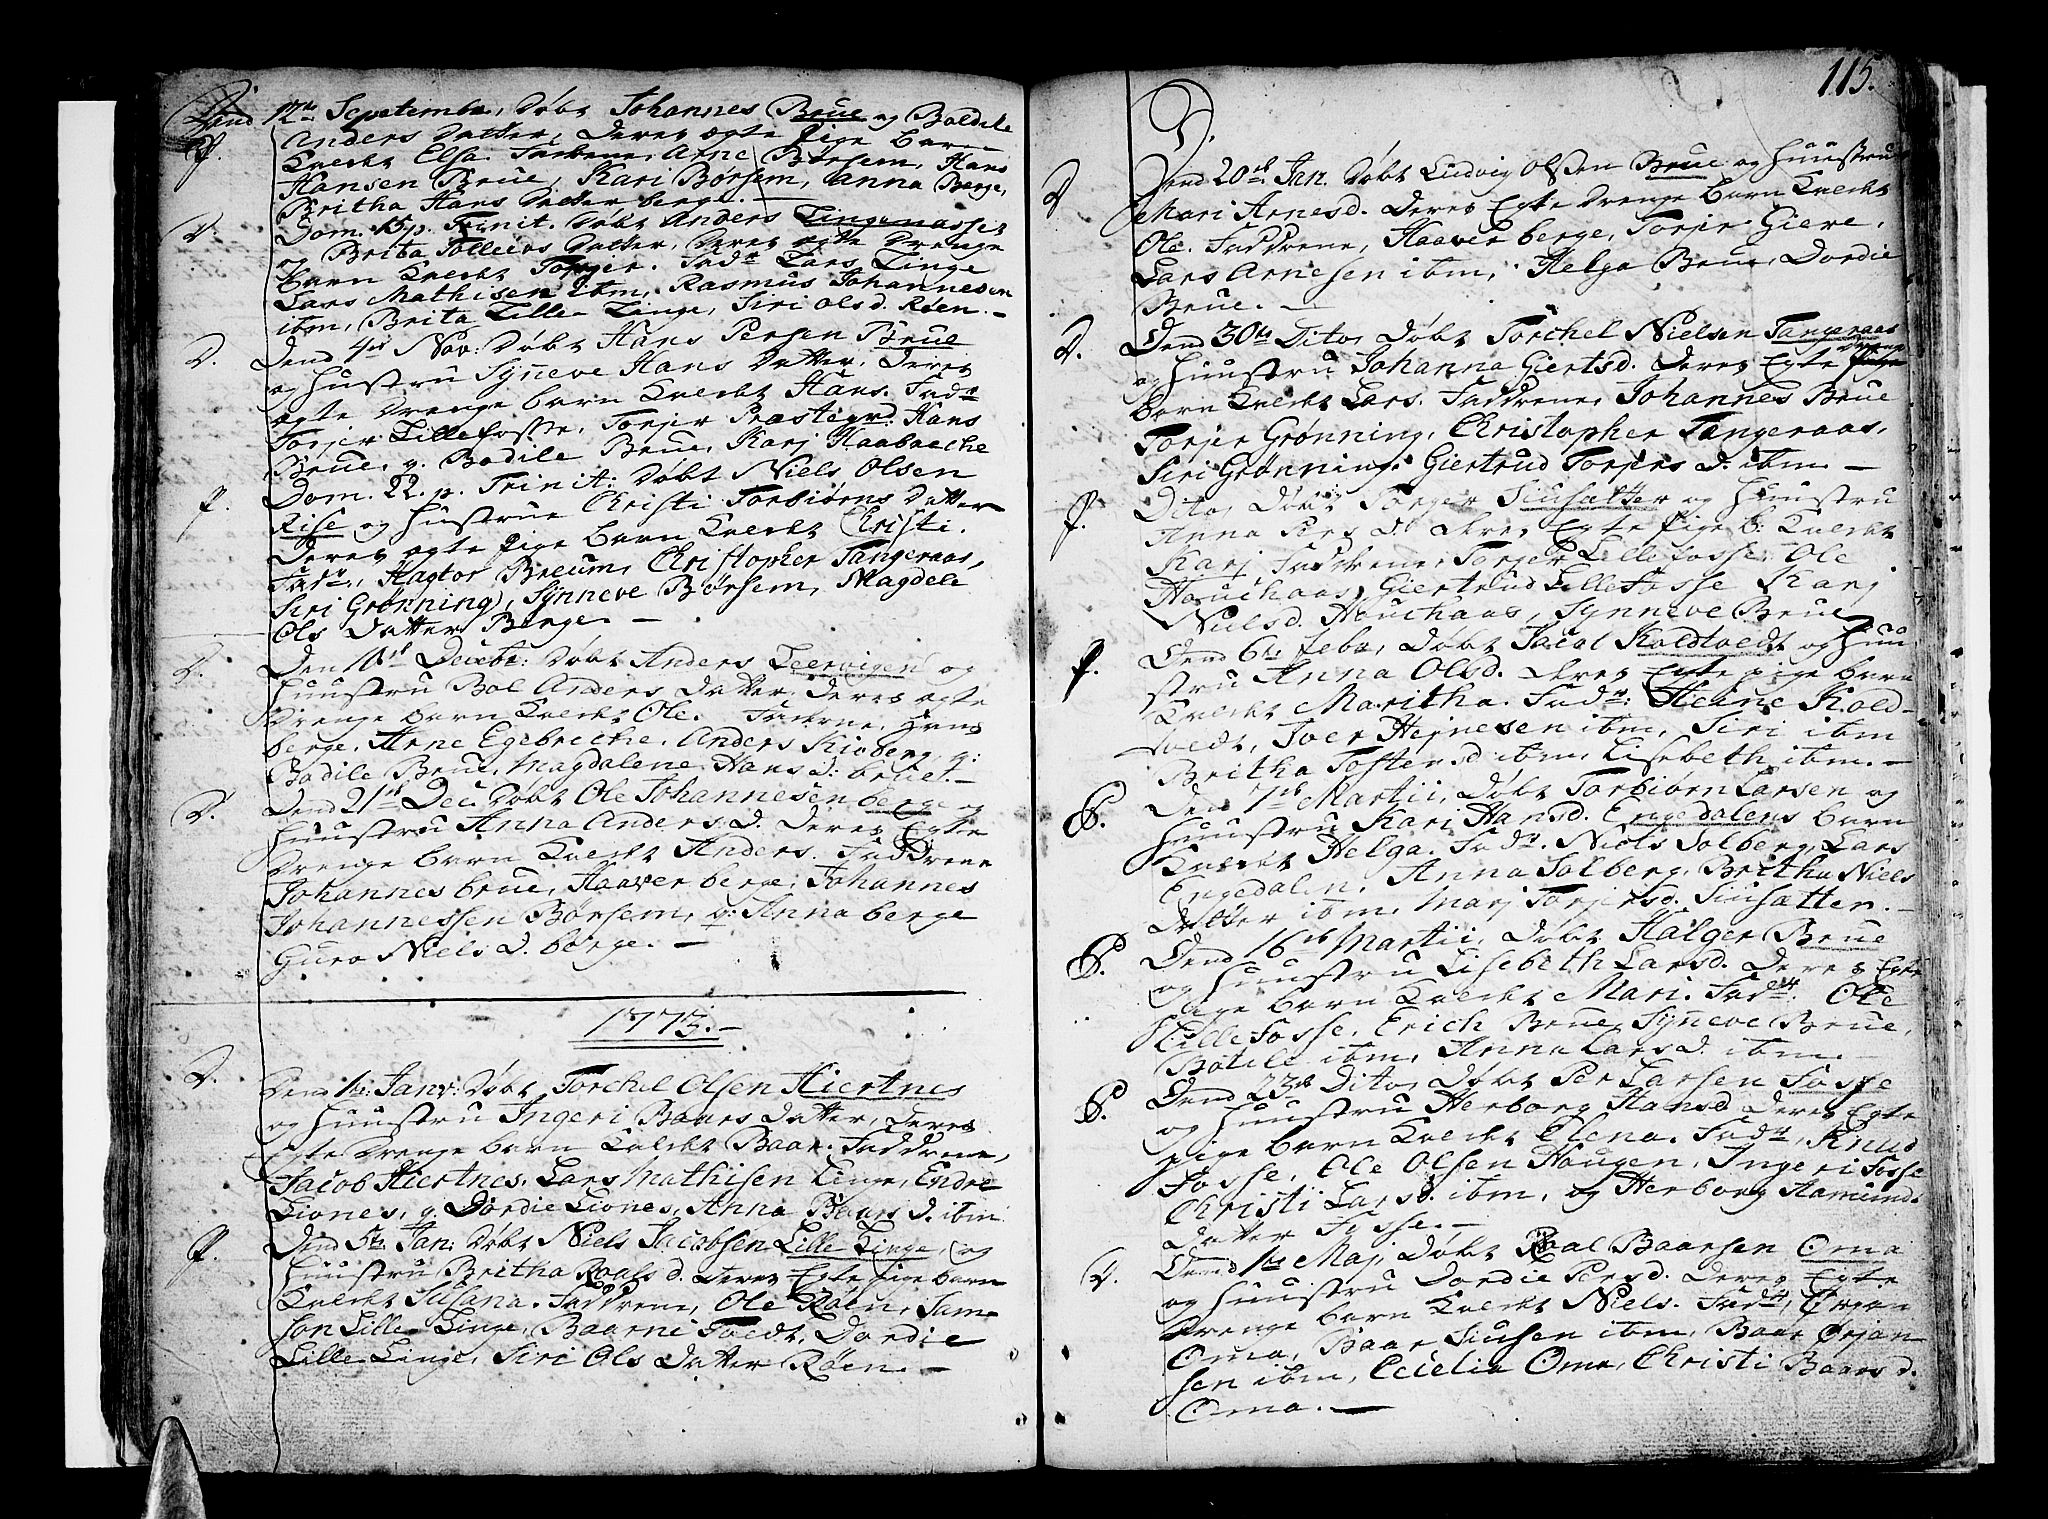 Dend 12te Septembr, Døbt Johannes Brue og Boldile
Anders Datter, Deres ægte pige barn
P.
Kaldet Elsa. Fadrene, Arne Børsem, Hans
Hansen Brue, Kari Børsem, Anna Berge,
Britha Hans Datter berge. —
D.
Dom. 15 p. Trinit. Døbt Anders Lingenasset
og Brita Tolleivs Datter, Deres ægte Drenge
barn Kaldet Torjer. Fadr Lars Linge
Lars Mathisen ibm, Rasmus Johannesen
ibm, Brita Lille Linge, Siri Olsd. Røen. —
D.
Dend 4de Nov: Døbt Hans Persen Brue
og Hustru Syneve Hans Datter, Deres
ægte Drenge barn Kaldet Hans. Fadr
Torjer Lillefosse, Torjer Præstegrd: Hans
Brue, q. Bodile Brue, Karj Haabache
P.
Dom. 22. p. Trinit: Døbt Niels Olsen
Rise og Hustrue Christi Torbiørns Datter
Deres ægte pige barn Kaldet Christi.
Fadr, Hagtor Breum, Christopher Tangeraas,
Siri Grønning, Synneve Børsem, Magdele
Ols Datter Berge. —
D.
Den Decbr: Døbt Anders Leervigen og
Huustru Bol Anders Datter Deres ægte
Drenge barn Kaldet Ole. Fadrene, Hans
berge, Arne Egebreche, Anders Kioberg, q:
Bodile Brue, Magdalene Hans D: brue. —
D.
Dend 21de Dec. Døbt Ole Johannesen berge og
Huustru Anna Anders D. Deres Egte
Drenge barn Kaldet Anders. Faddrene
Johannes brue, Haaver berge, Johannes
Johannessen Børsem, q: Anna berge
Guro Niels D. berge. —
1773. —
D.
Den 1te Janv: Døbt Torchel Olsen Hiertnes
og Huustru Ingeri Baars Datter, Deres
Egte Drenge barn Kaldet Baar. Faddrene,
Jacob Hiertnes, Lars Mathisen Linge, Endre
Liones, q. Dordie Liones, Anna Baars D. ibm
P.
Dend 5te Jan: Døbt Niels Jacobsen Lille Linge og
Huustru Britha Roalsd. Deres Egte pige barn
Kaldet Susana. Faddrene, Ole Røen, Sam-
son Lille Linge, Baarni Tvedt, Dordie
Lille Linge, Siri Ols Datter Røen. —
115.
D.
D
Dend 20de Jan. Døbt Ludvig Olsen Brue og Huustru
Mari Arnesd. Deres Egte Drenge barn Kaldet
Ole. Faddrene, Haaver berge, Torjer Giere,
Lars Arnesen ibm, Helga Brue, Dordie
Brue. —
D.
Den 30te Dito, Døbt Torchel Nielsen Tangeraas
og Huustru Johanna Giertsd. Deres Egte Drenge
barn Kaldet Lars. Faddrene, Johannes Brue
Torjer Grønning, Christopher Tangeraas,
Siri Grønning, Giertrud Torjers D. ibm. —
P.
Dito, Døbt Torger Siusatter og Huustru
Anna Pers D. Deres Egte pige b: Kaldet
Karj Faddrene, Torjer Lille fosse, Ole
Houchaas, Giertrud Lille Fosse Karj
Nielsd. Houchaas, Synneve Brue
P.
Dend 6te Febr, Døbt Jacob Koldtvedt og Huu-
stru Anna Olsd. Deres Egte pige barn
Kaldet Maritha. Fadr: Heine Kold-
tvedt, Iver Hejnesen ibm, Siri ibm
Britha Tostensd ibm, Lisebeth ibm. —
P.
Den 7de Martii, Døbt Torbiørn Larsen og
Huustru Kari Hansd. Engedalens barn
Kaldet Helga. Fadr. Niels Solberg, Lars
Engedalen, Anna Solberg, Britha Niels
Datter ibm, Marj Torjersd. Siusatter. —
P.
Dend 16de Martii, Døbt Holger Brue
og Huustru Lisebeth Larsd. Deres Egte
pige barn Kaldet Mari. Fadr. Ole
Lille Fosse, Erich Brue, Syneve Brue,
Botele ibm, Anna Lars D. ibm. —
P.
Dend 23de Dito, Døbt Per Larsen Fosse
og Huustru Herborg Hansd Deres Egte
pige barn Kaldet Elena. Fadr, Knud
Fosse, Ole Olsen Haugen, Ingeri Fosse
Christi Larsd. ibm, og Herborg Aamunds
Datter Fosse. —
D.
Dend 1te Maj, Døbt Roal Baarsen Oma
og Huustru Dordie Persd. Deres Egte
Drenge barn Kaldet Niels. Fadr, Ørjan
Oma, Baar Siusen ibm, Baar Ørjan-
sen ibm, Cecelia Oma, Christi Baars d.
Oma. —